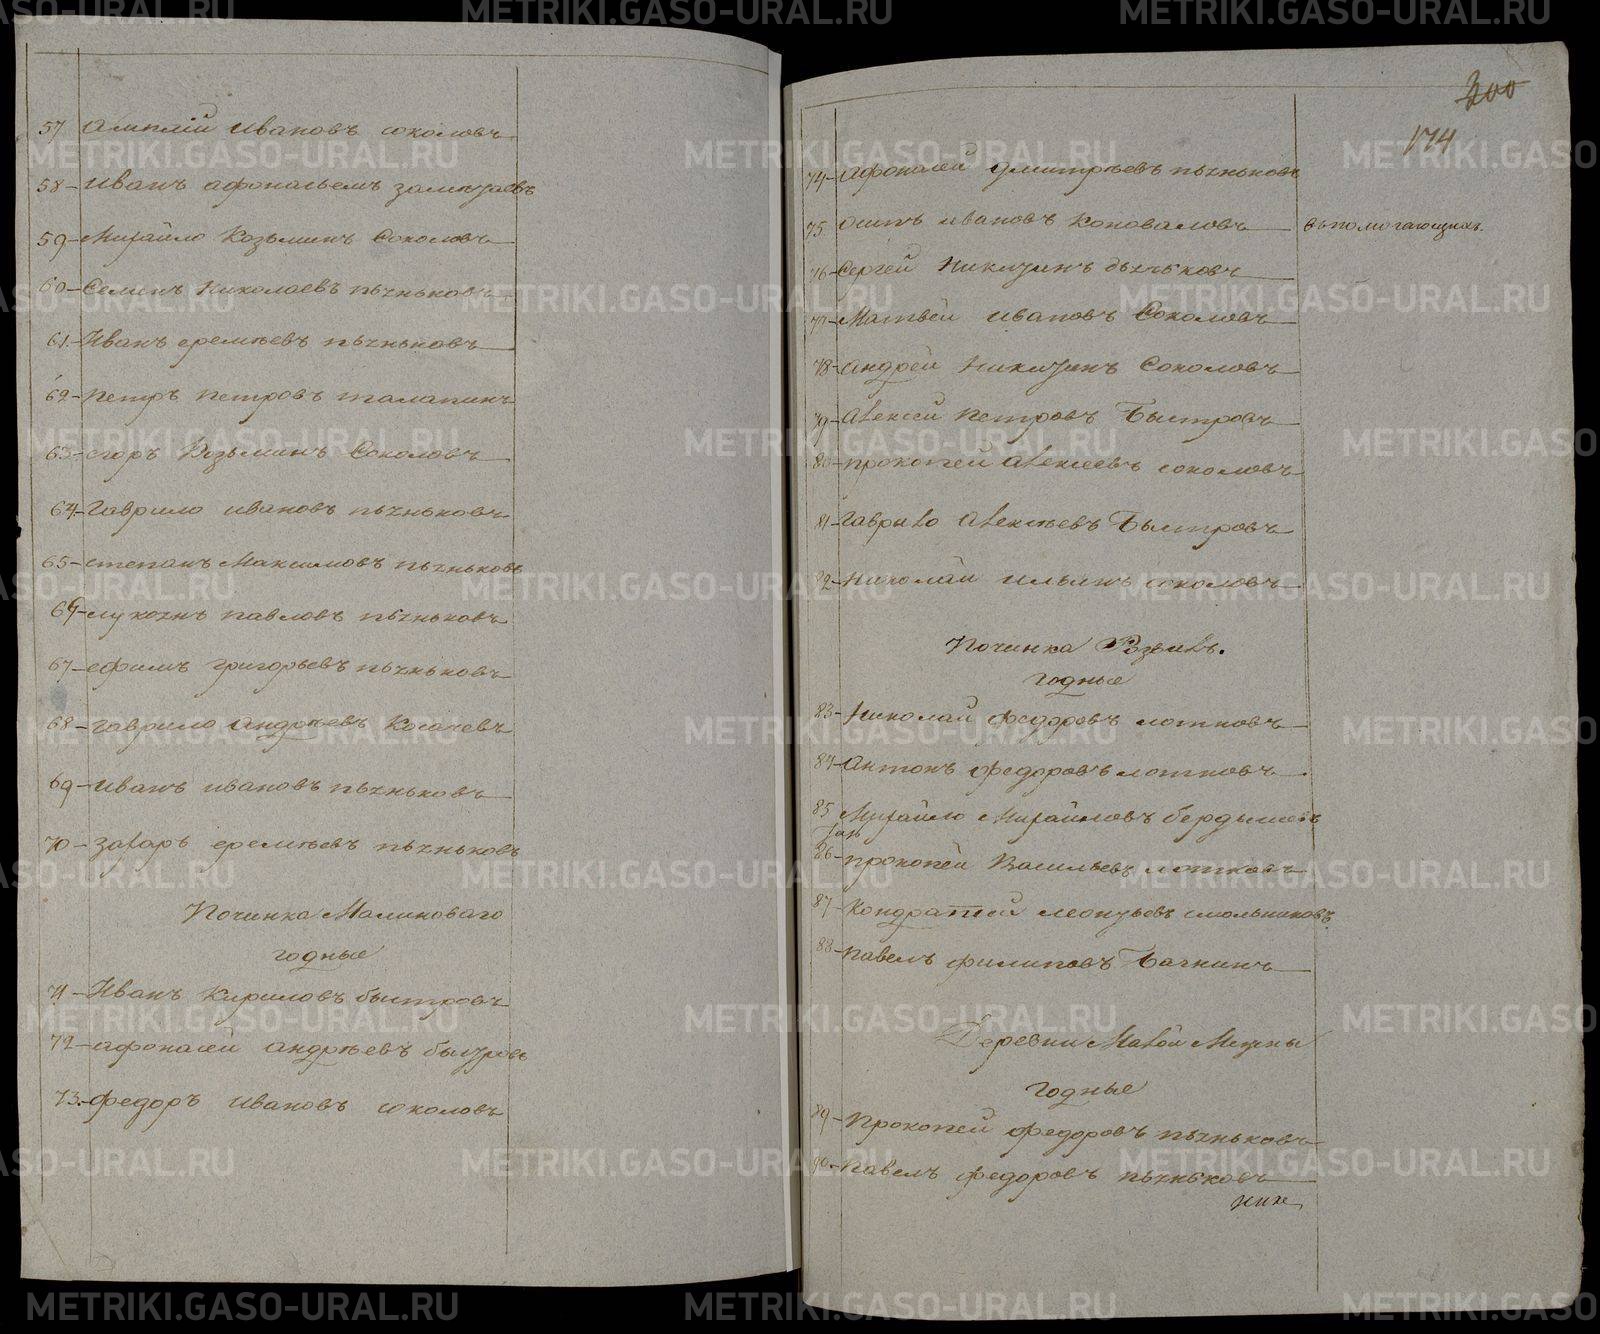 57 Амплiй Ивановъ соколовъ
58 Иванъ афонасьевъ
59 Михайло Козьминъ Соколовъ
60 Семенъ Николаевъ пьянковъ
61 Иванъ еремѣевъ пьянковъ
62 Петръ Петровъ талапинъ
63 егоръ Козьминъ Соколовъ
64 Гаврило ивановъ пьянковъ
65 степанъ Максимовъ пьянковъ
66 павловъ пьянковъ
67 ефимъ григорьевъ пьянковъ
68 гаврило андрѣевъ Косачевъ
69 иванъ ивановъ пьянковъ
70 захаръ еремѣевъ пьянковъ
Починка Малиноваго
годные
71 Иванъ Кириловъ быстровъ
72 афонасей андрѣевъ быстровъ
73 федоръ ивановъ соколовъ
300
174
74 афонасей дмитрѣевъ пьянковъ
75 осипъ ивановъ Коноваловъ
вспомогающихъ
76 Сергей Никитинъ
77 Матвей ивановъ Соколовъ
78 андрей Никитинъ Соколовъ
79 алексей Петровъ Быстровъ
80 прокопей алексеевъ соколовъ
81 Гаврило алексѣевъ Быстровъ
82 Николай ильинъ соколовъ
Починка
годные
83 Николай федоровъ лотковъ
84 антонъ федоровъ лотковъ
85 Михайло Михайловъ бердышевъ
86 прокопей Васильевъ лотковъ
87 Кондратей леонтьевъ смольниковъ
88 павелъ филиповъ Бачнинъ
Деревни Малой
годные
89 Прокопей федоровъ пьянковъ
90 павелъ федоровъ пьянковъ
METRIKI.GASO-URAL.RU